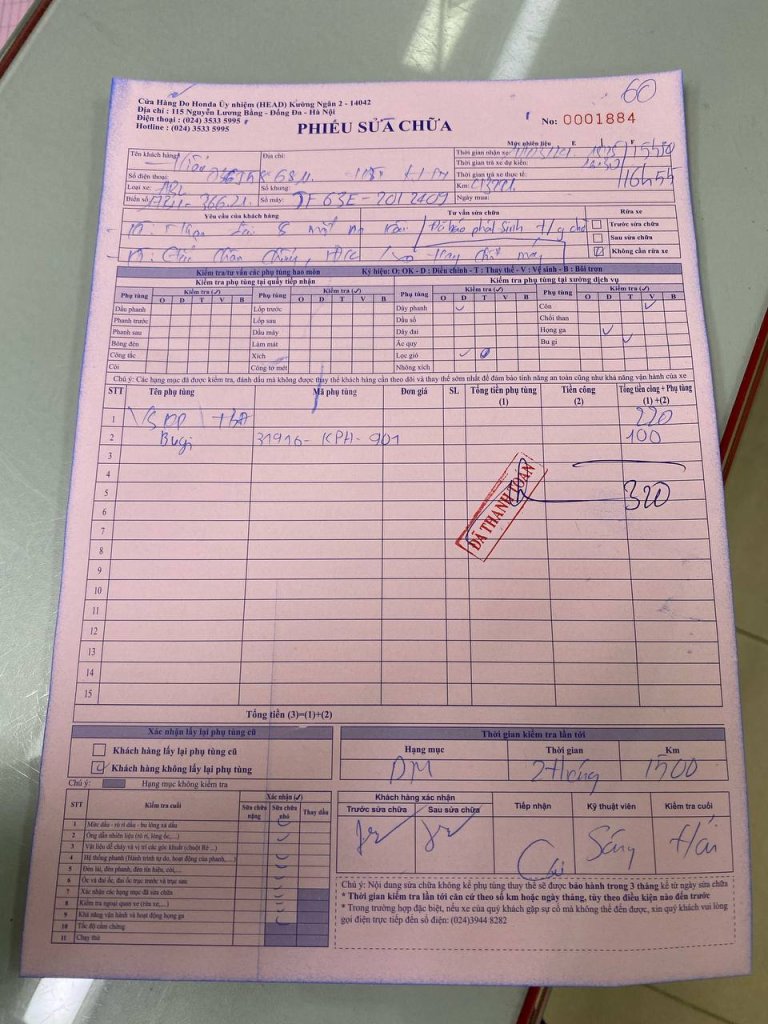 Cửa Hàng Do Honda Ủy nhiệm (HEAD) Kường Ngân 2 - 14042
Địa chỉ : 115 Nguyễn Lương Bằng - Đống Đa - Hà Nội
Điện thoại : (024) 3533 5995
Hotline : (024) 3533 5995
60
PHIẾU SỬA CHỮA
No: 0001884
Mức nhiên liệu E F
Tên khách hàng:
Địa chỉ:
Thời gian nhận xe: 15h50
Số điện thoại:
Thời gian trả xe dự kiến:
Loại xe:
Số khung:
Thời gian trả xe thực tế: 16h55
Biển số:
Số máy: JF63E-2012409
Km
Ngày mua:
Yêu cầu của khách hàng
Tư vấn sửa chữa
Rửa xe
Trước sửa chữa
Sau sửa chữa
Không cần rửa xe
Kiểm tra/tư vấn các phụ tùng hao mòn
Ký hiệu: O: OK - D : Điều chỉnh - T : Thay thế - V : Vệ sinh - B : Bôi trơn
Kiểm tra phụ tùng tại quầy tiếp nhận
Kiểm tra phụ tùng tại xưởng dịch vụ
Phụ tùng Kiểm tra (✓) Phụ tùng Kiểm tra (✓) Phụ tùng Kiểm tra (✓) Phụ tùng Kiểm tra (✓)
O D T V B O D T V B O D T V B O D T V B
Dầu phanh Lốp trước Dây phanh Côn
Phanh trước Lốp sau Dầu số Chổi than
Phanh sau Dầu máy Dây đai Họng ga
Bóng đèn Làm mát Ắc quy Bu gi
Công tắc Xích Lọc gió
Còi Công tơ mét Nhông xích
Chú ý: Các hạng mục đã được kiểm tra, đánh dấu mà không được thay thế khách hàng cần theo dõi và thay thế sớm nhất để đảm bảo tính năng an toàn cũng như khả năng vận hành của xe
STT Tên phụ tùng Mã phụ tùng Đơn giá SL Tổng tiền phụ tùng (1) Tiền công (2) Tổng tiền công + Phụ tùng (1) +(2)
1 220
2 Bugi 31916-KPH-901 100
3
4
5 320
6
ĐÃ THANH TOÁN
7
8
9
10
11
12
13
14
15
Tổng tiền (3)=(1)+(2)
Xác nhận lấy lại phụ tùng cũ
Thời gian kiểm tra lần tới
Khách hàng lấy lại phụ tùng cũ
Hạng mục Thời gian Km
Khách hàng không lấy lại phụ tùng
DM 2 tháng 1500
Chú ý: Hạng mục không kiểm tra
STT Kiểm tra cuối Xác nhận (✓)
Sửa chữa nặng Sửa chữa nhỏ Thay dầu
Khách hàng xác nhận
Trước sửa chữa Sau sửa chữa
Tiếp nhận Kỹ thuật viên Kiểm tra cuối
Sáng
1 Mức dầu - rò rỉ dầu - bu lông xả dầu
2 Ống dẫn nhiên liệu (rò rỉ, lỏng ốc,....)
3 Vật liệu dễ cháy và vị trí các góc khuất (chuột Bé ...)
4 Hệ thống phanh (hành trình tự do, hoạt động của phanh, ...)
5 Đèn lái, đèn phanh, đèn tín hiệu, còi,...
6 Ốc và đai ốc, đai ốc trục trước và trục sau
7 Xác nhận các hạng mục đã sửa chữa
8 Kiểm tra ngoại quan xe (rửa xe,...)
9 Khả năng vận hành và hoạt động họng ga
10 Tốc độ cầm chừng
11 Chạy thử
Chú ý: Nội dung sửa chữa không kể phụ tùng thay thế sẽ được bảo hành trong 3 tháng kể từ ngày sửa chữa
* Thời gian kiểm tra lần tới căn cứ theo số km hoặc ngày tháng, tùy theo điều kiện nào đến trước
* Trong trường hợp đặc biệt, nếu xe của quý khách gặp sự cố mà không thể đến được, xin quý khách vui lòng
gọi điện trực tiếp đến số điện: (024)3944 8282